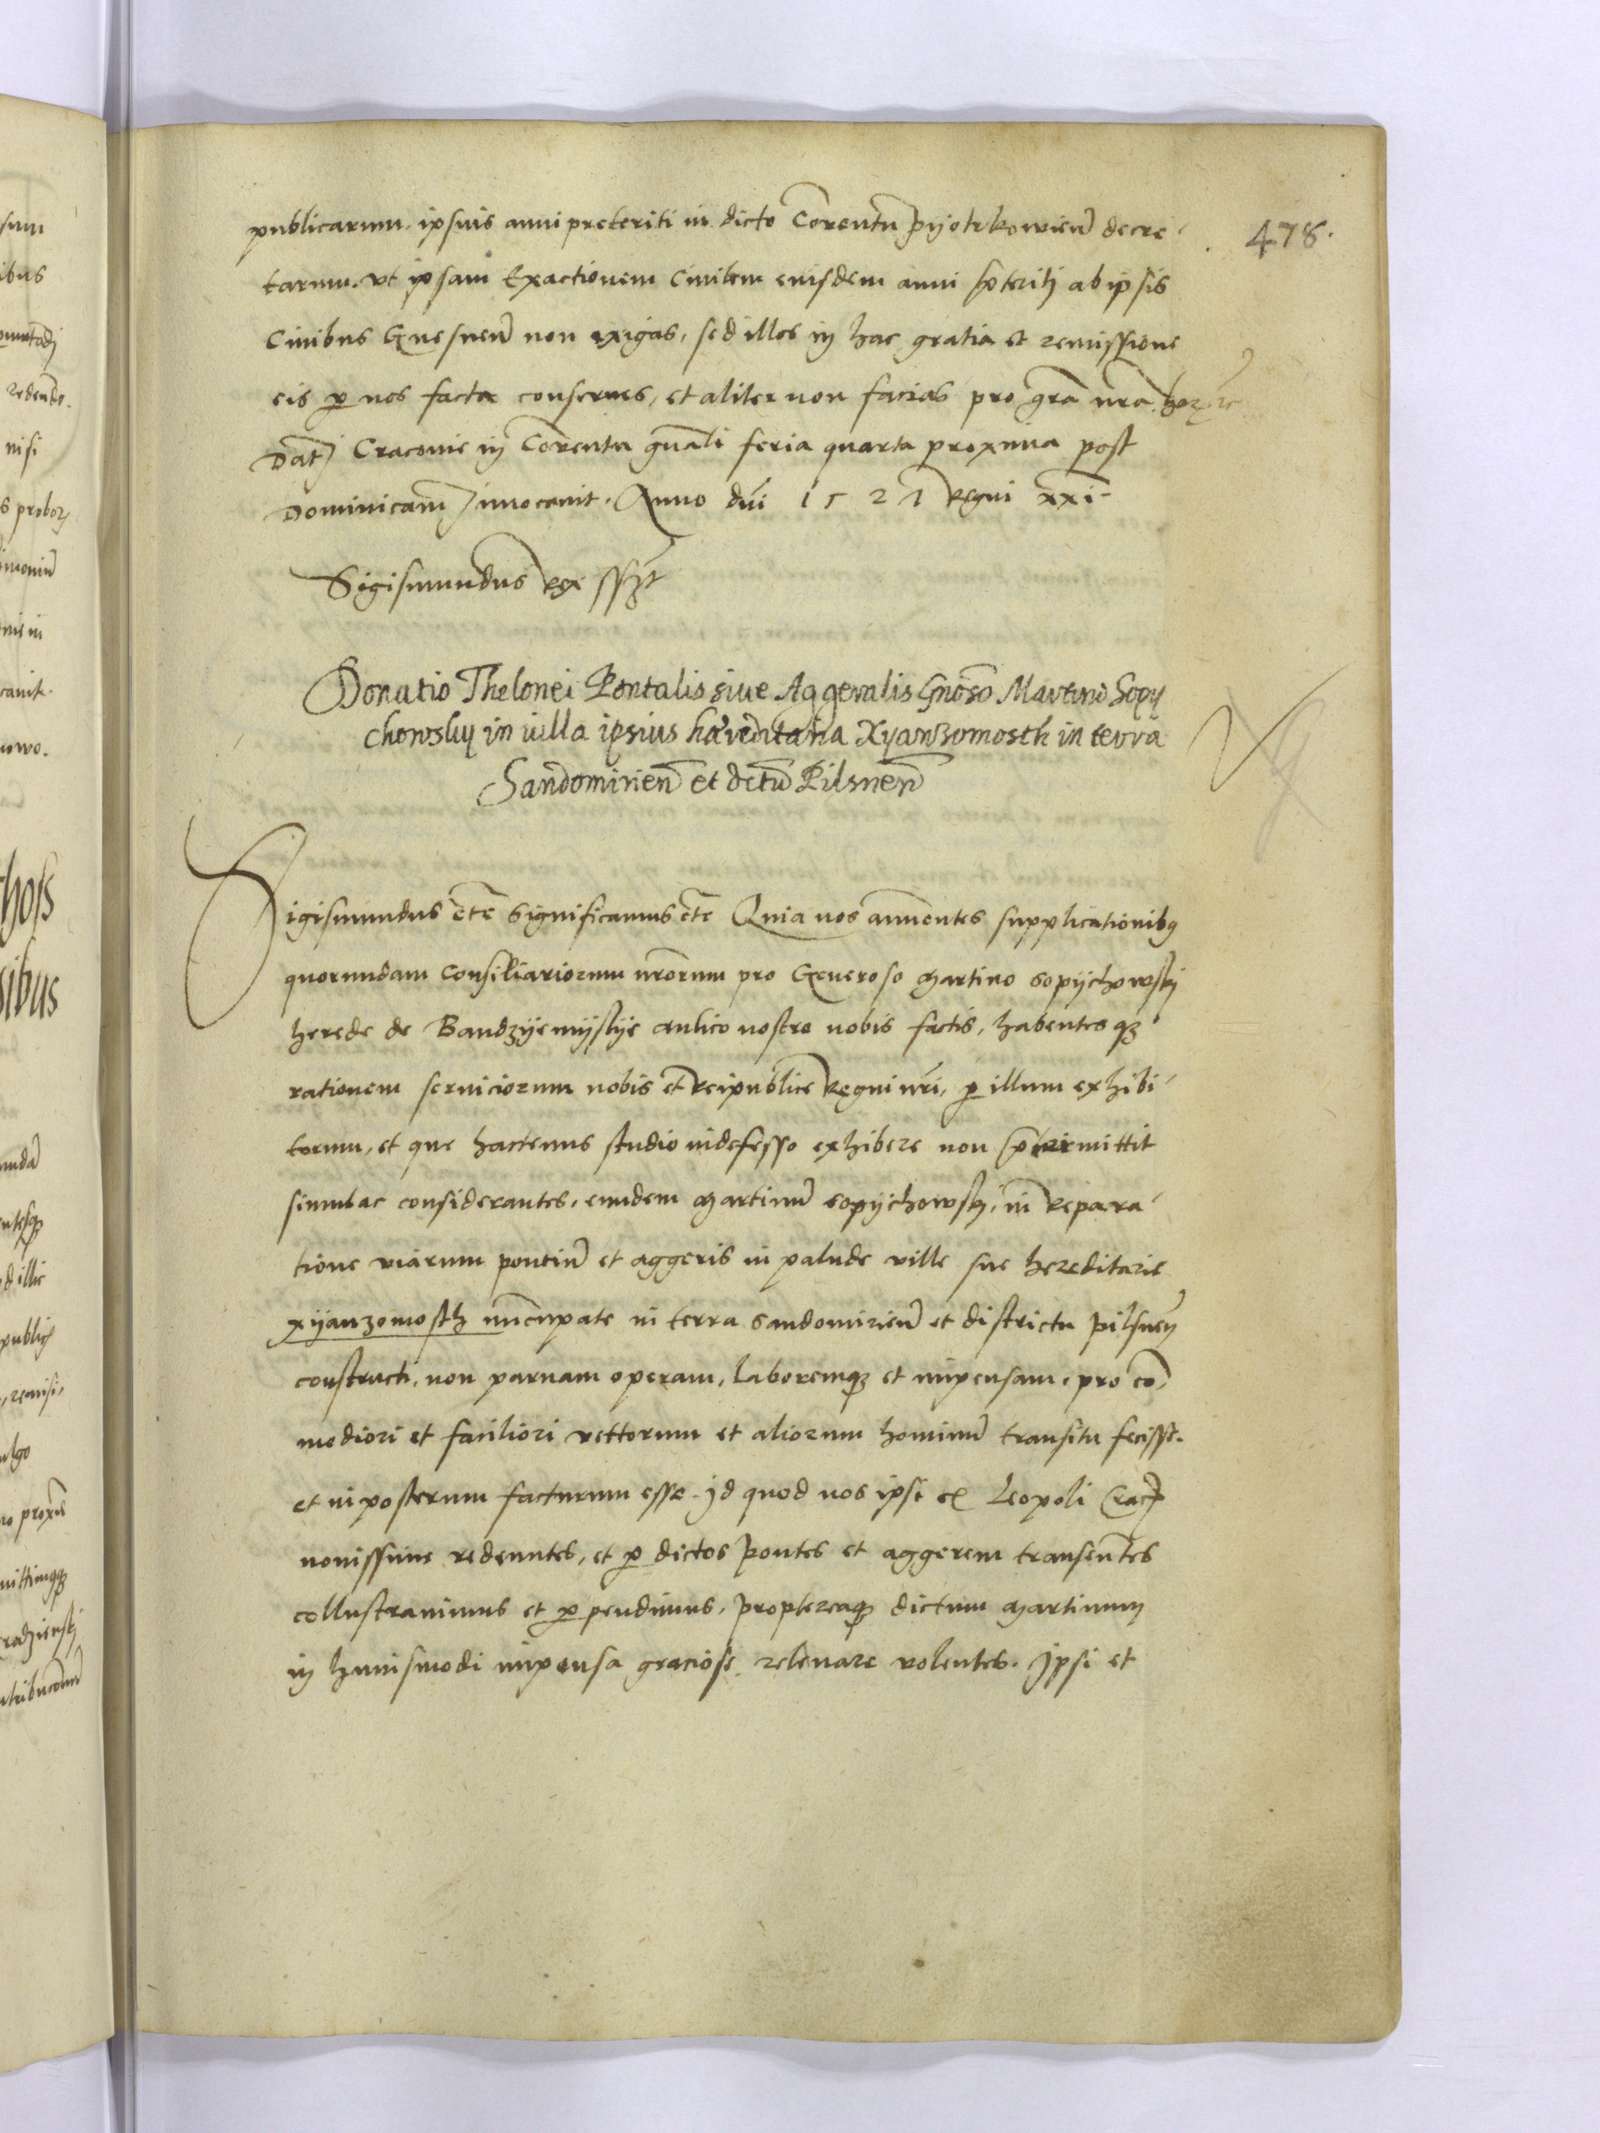 publicarum. ipsius anni preteriti in dicto Conventu pyotrkowien̄ decre
tarum. ut ipsam Exactionem Civilem eiusdem anni p̄teriti ab ipsis
Civibus Gnesnen̄ non exigas, sed illos in hac gratia et remissione
eis p nos facta conserves, et aliter non facias pro gr̄a nr̄a
478.
Dat Cracovie in Conventu gn̄ali feria quarta proxima post
Dominicam Invocavit. Anno dn̄i 1521 Regni xxi.
Sigismundus Rex sszt
Donatio Thelonei Pontalis siue Aggeralis Gnōso Martino Sopy
chowsky in uilla ipsius haereditaria Xyanzomosth in terra
Sandomirien̄ et dctū Pilsnen̄
Sigismundus etc̄ Significamus etc̄ Quia nos annuentes supplicationibus
quorundam Consiliariorum nr̄orum pro Generoso Martino Sopychowsky
herede de Bandzyemyslye aulico nostro nobis factis, habentesqz
rationem serviciorum nobis et Reipublice Regni nr̄i, p illum exhibi
torum, et que hactenus studio indefesso exhibere non p̄termittit
simulac considerantes, eundem Martinū Sopychowsky, in repara
tione viarum pontiū et aggeris in palude ville sue hereditarie
Xyanzomosth nuncupate in terra Sandomirien̄ et districtu pilsnen̄
constructi, non parvam operam, laboremqz et impensam, pro co
modiori et faciliori vectorum et aliorum hominū transitu fecisse.
et in posterum facturum esse. Id quod nos ipsi ex Leopoli Crac̄
novissime redeuntes, et p dictos pontes et aggerem transeuntes
collustravimus et p pendimus, proptereaqz dictum Martinum
in huiusmodi impensa graciose relevare volentes. Ipsi et